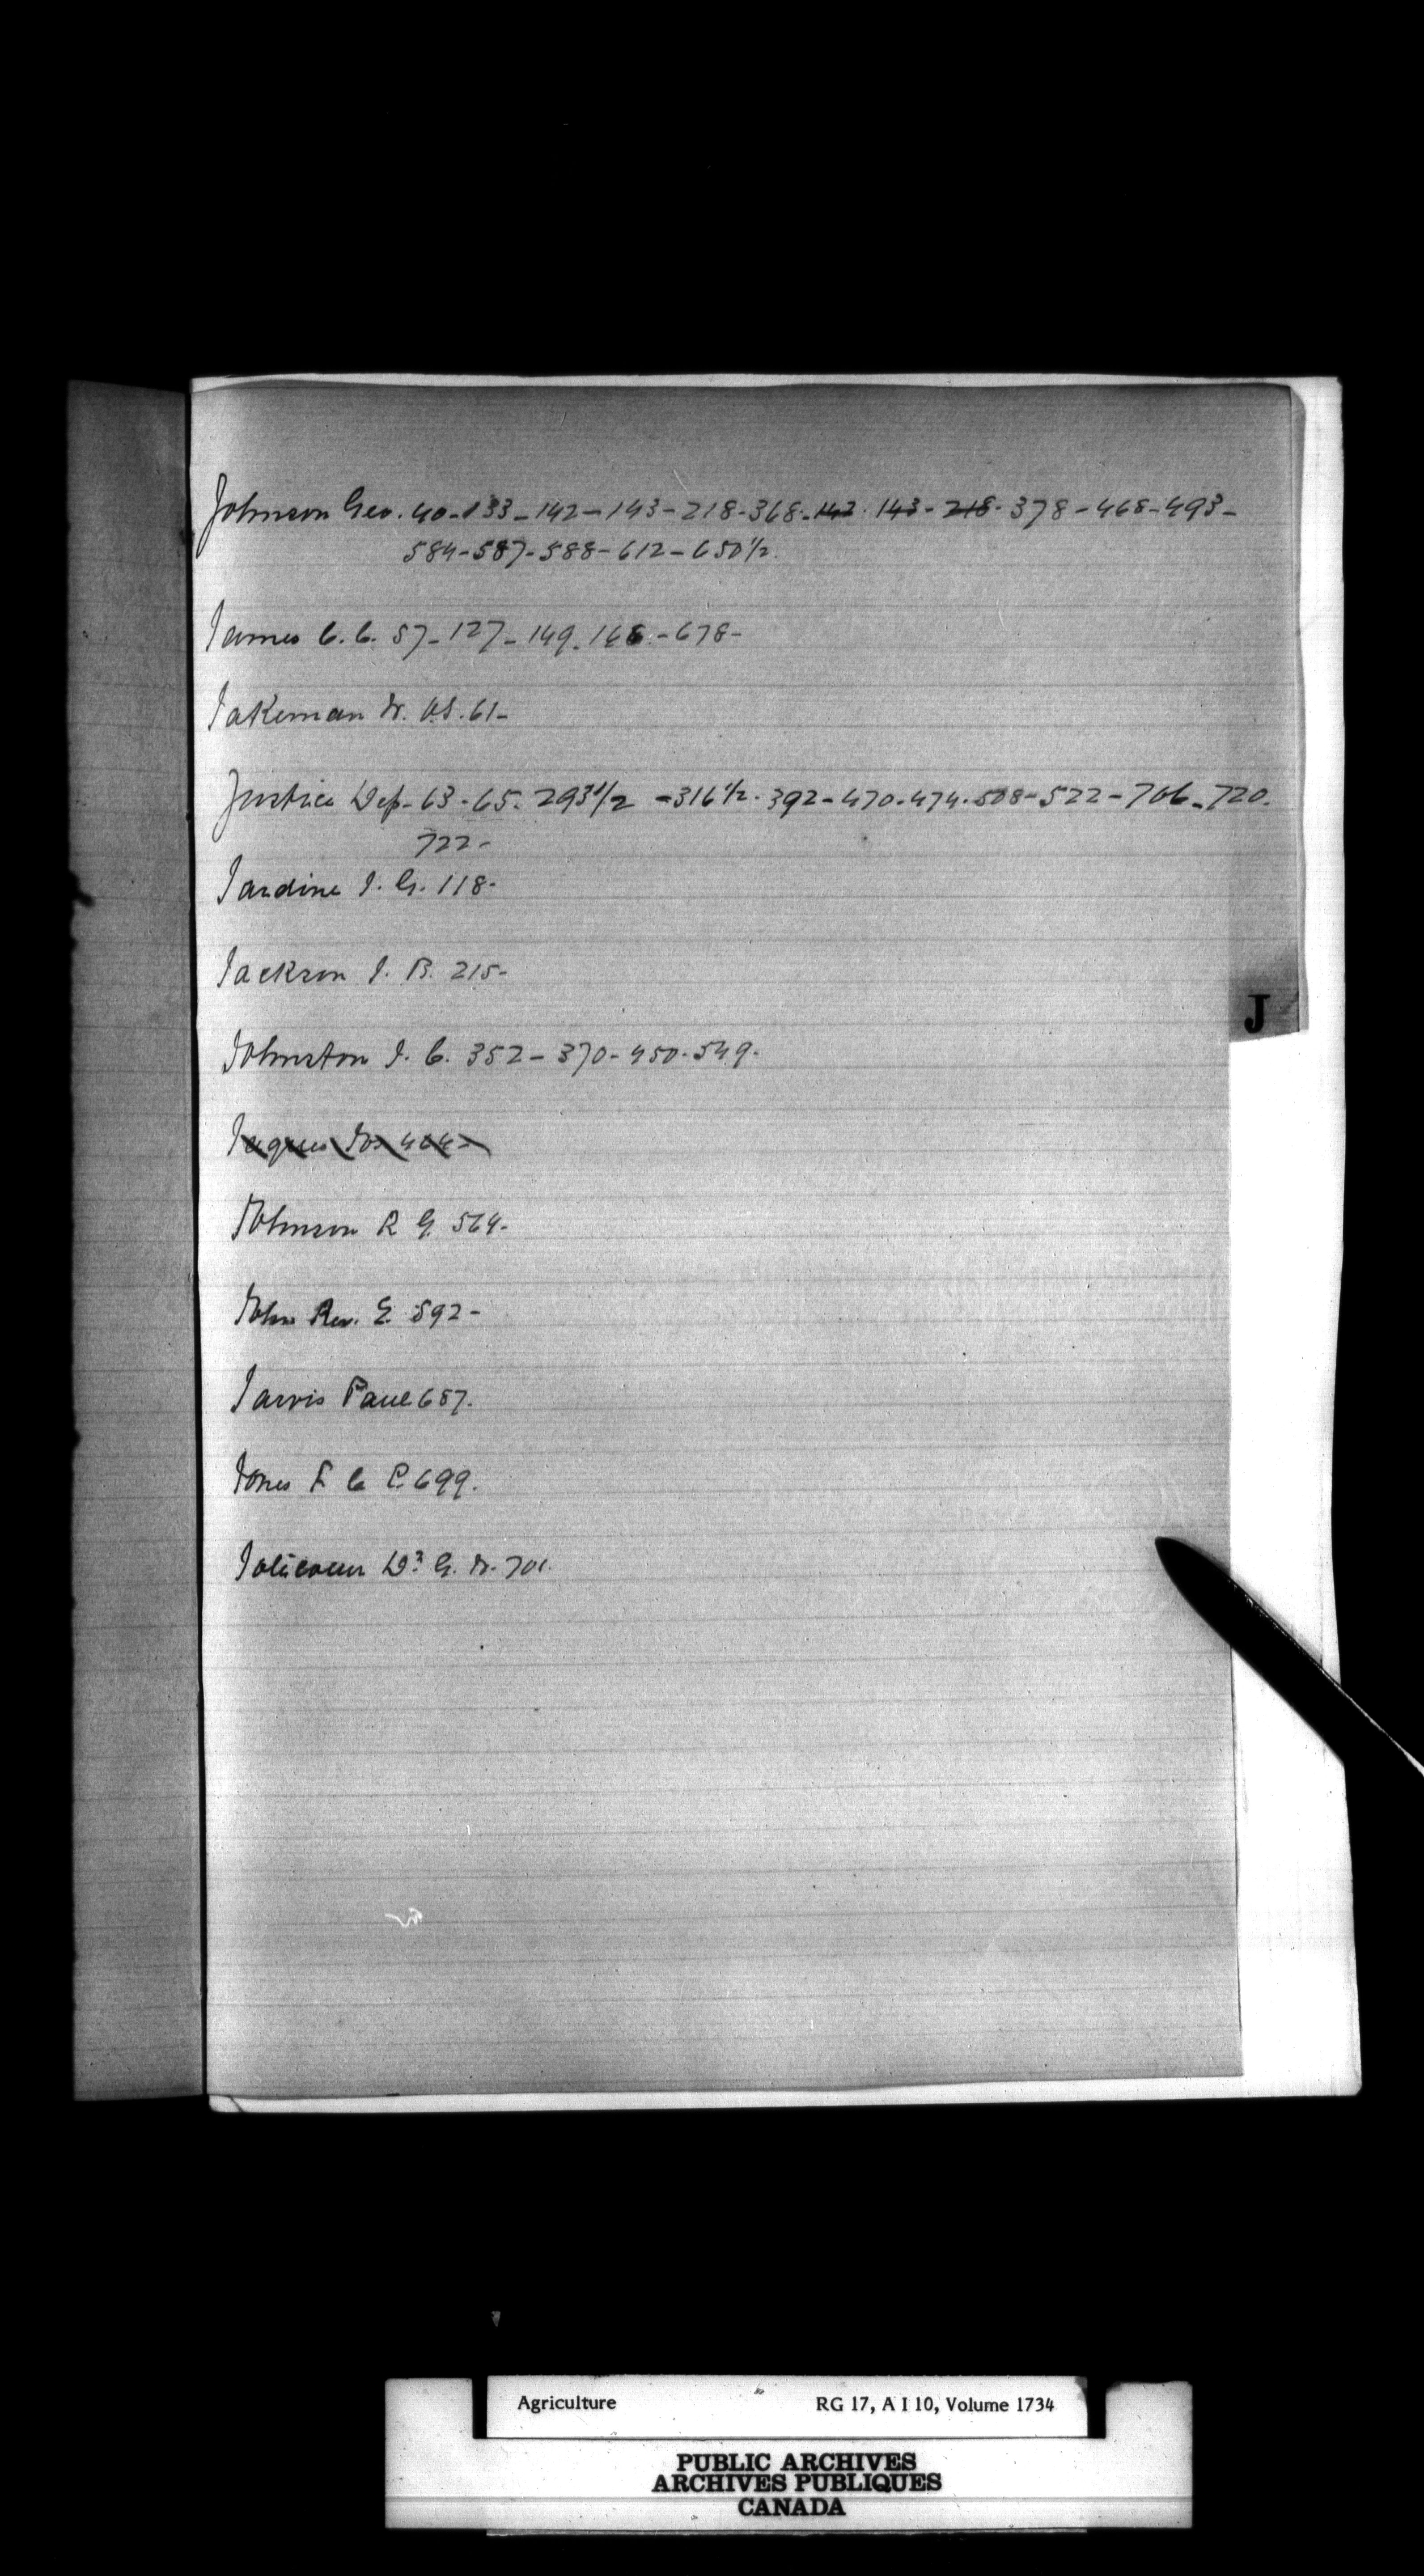 Johnson Geo. 40-133-142-143-218-368-142-143-218-378-468-493-
584-587-588-612-650½.
James C. C. 57-127-149-166-678-
Jakeman W. 61-
Justice Dep- 63-65-293½-316½-392-470-474-508-522-706-720-
722-
Jardine J. G. 118-
Jackson J. B. 215-
Johnston J. C. 352-370-450-549-
Jaques
J
Johnson R G 564-
John Rev. E. 592-
Jarvis Paul 687.
Jones F C C 699.
Jolicoeur G. W. 701.
Agriculture RG 17, A I 10, Volume 1734
PUBLIC ARCHIVES
ARCHIVES PUBLIQUES
CANADA